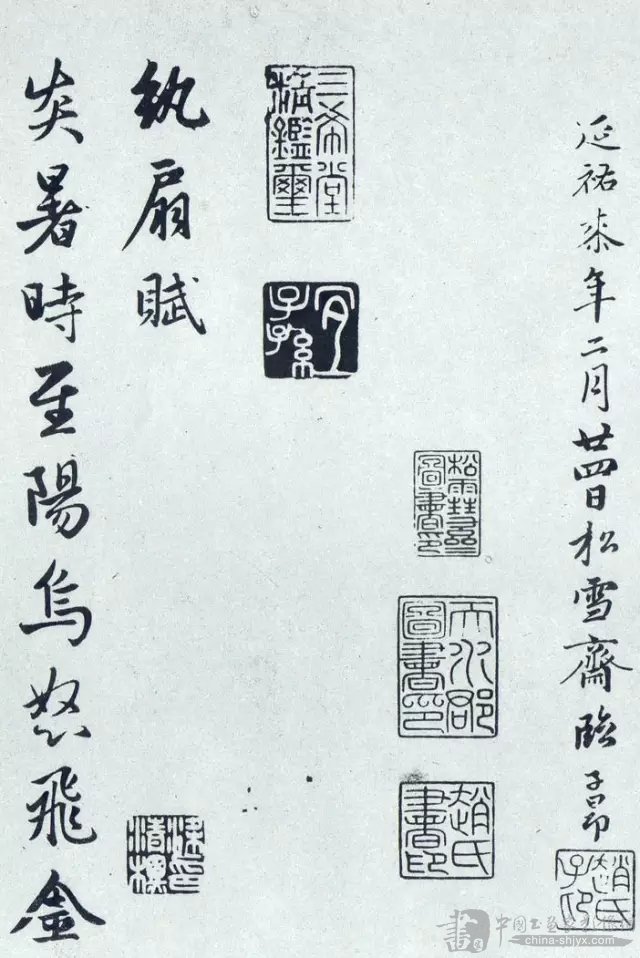 延祐柒年二月廿四日松雪齋臨子昂
趙氏子昂
松雪齋圖書印
天水郡圖書印
趙氏書印
三希堂精鑑璽
宜子孫
紈扇賦
炎暑時至陽烏怒飛金
china-shjyx.com